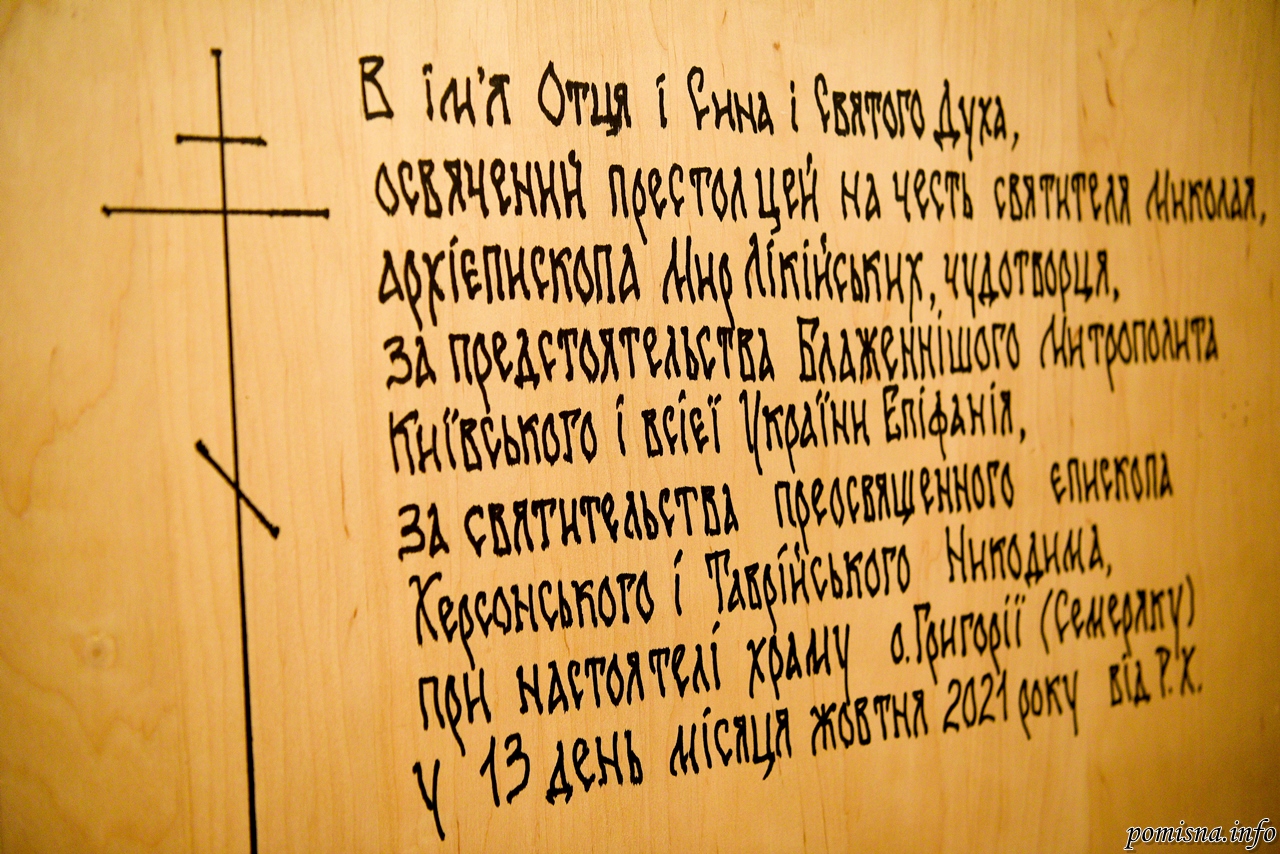 В ім'я Отця і Сина і Святого Духа,
освячений престол цей на честь святителя Миколая,
архієпископа Мир Лікійських, чудотворця,
за предстоятельства Блаженнішого Митрополита
Київського і всієї України Епіфанія,
за святительства преосвященного єпископа
Херсонського і Таврійського Никодима,
при настоятелі храму о.Григорії (Семеряку)
у 13 день місяця жовтня 2021 року від Р.Х.
pomisna.info